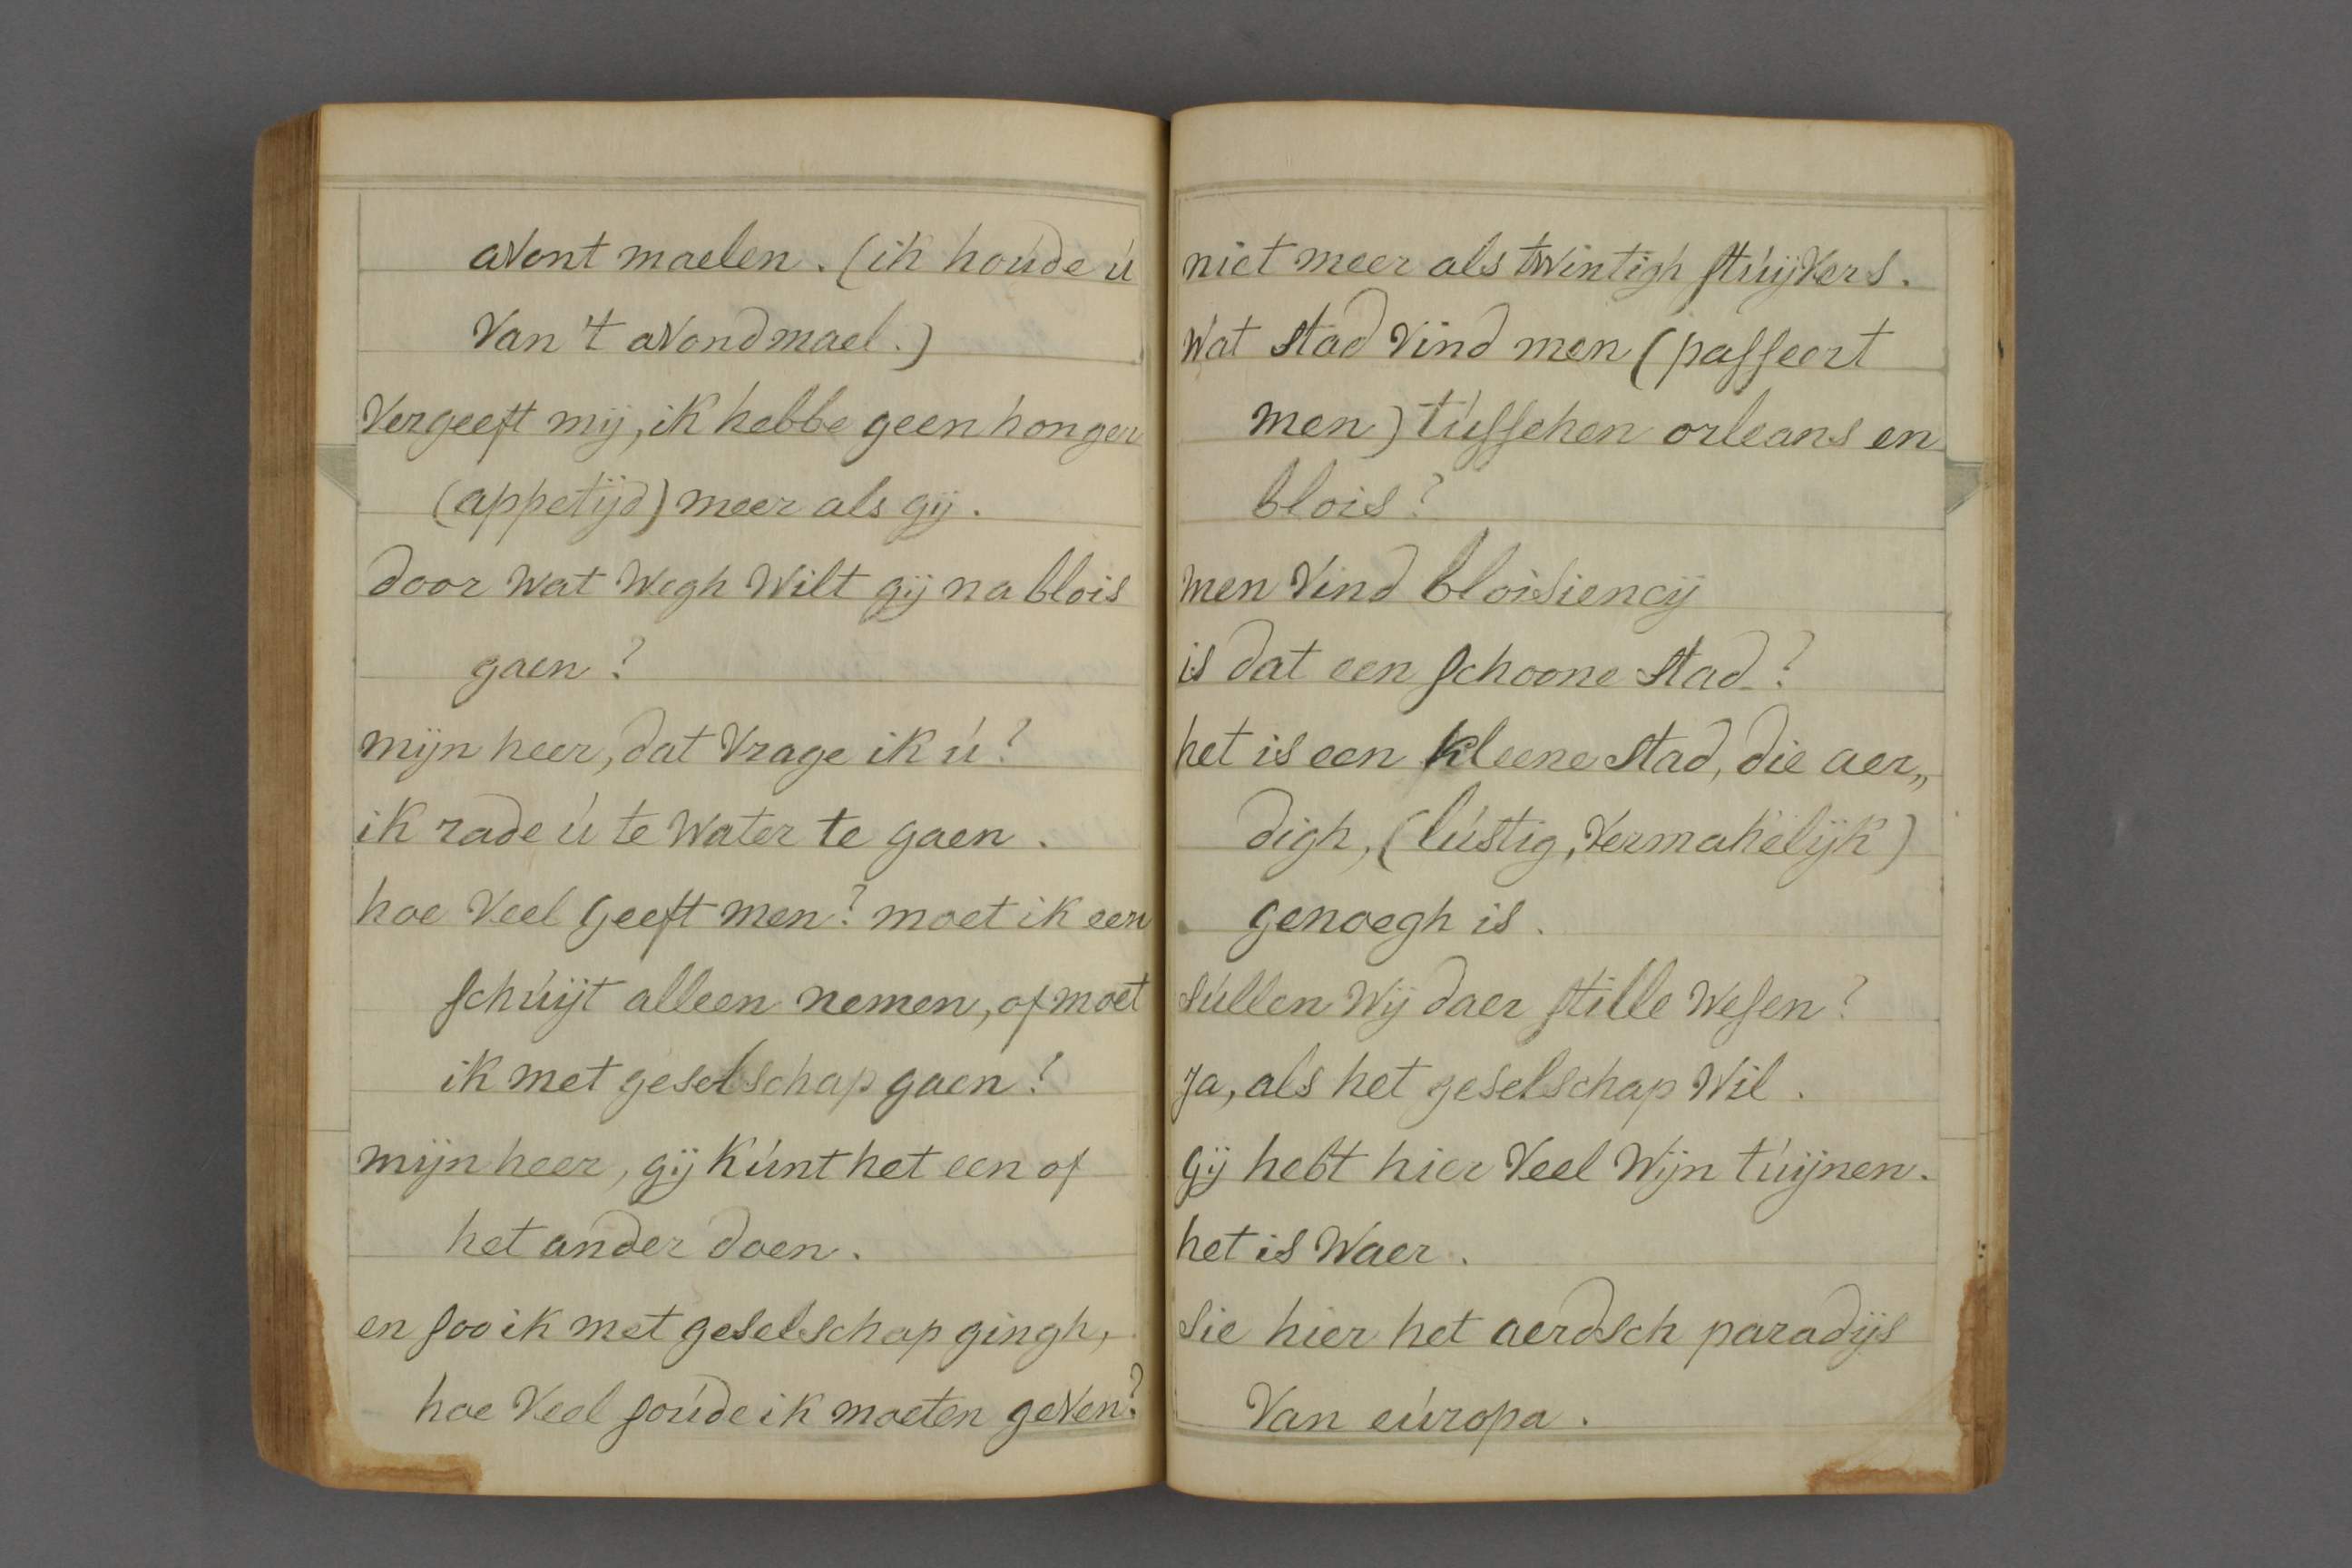 avont maelen. (ik houde ú
Van 't avondmael.)
Vergeeft mij, ik hebbe geen honger
(appetijd) meer als gij.
door wat wegh wilt gij na blois
gaen?
mijn heer, dat vrage ik ú?
ik rade ú te water te gaen.
hoe veel geeft men? moet ik een
schúijt alleen nemen, of moet
ik met geselschap gaen?
mijn heer, gij kúnt het een of
het ander doen.
en soo ik met geselschap gingh,
hoe veel soúde ik moeten geven?
niet meer als twintigh stúijvers.
wat stad vind men (passeert
men) tússchen orleans en
blois?
men vind bloisiencij
is dat een schoone stad?
het is een kleene stad, die aer„
digh, (lústig, vermakelijk)
genoegh is.
súllen wij daer stille wesen?
Ja, als het geselschap wil.
gij hebt hier veel wijn túijnen.
het is waer.
sie hier het aerdsch paradijs
Van eúropa.